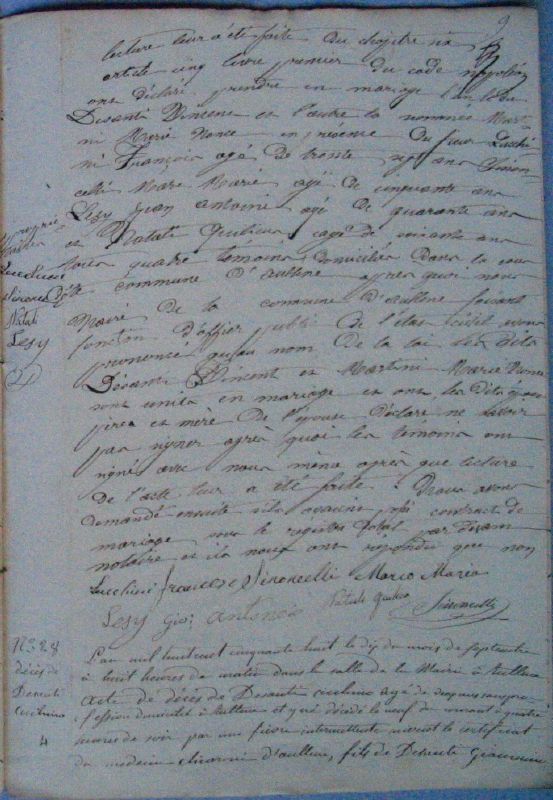 9
lecture leur a été faite du chapitre six
article cinq livre premier du code napoléon
ont déclaré prendre en mariage l'un la
Desanti Vincent et l'autre la nommée Marti
ni Marie Nonce en presence des sieur Lucchi
ni François agé de trente sept ans Simon
celli Marc Marie agé de cinquante ans
Lesy Jean Antoine agé de quarante ans
et Natali Quilicus agé de soixante ans
tous quatre témoins domiciliés dans la sus
dite commune d'Aullene après quoi nous
Maire de la commune d'Aullene faisant
fonction d'officier public de l'état civil avons
prononcé qu'au nom de la loi les dits
Desanti Vincent et Martini Marie Nonce
sont unis en mariage et ont les dits époux
père et mère de l'épouse déclaré ne savoir
pas signer après quoi les témoins ont
signé avec nous même après que lecture
de l'acte leur a été faite. Nous avons
demandé ensuite s'ils avaient passé contract de
mariage par devant
notaire et ils nous ont répondu que non
Lucchini Francesco Simoncelli Marco Maria
Lesy Gio: Antonio Natale Quilico Simoncelli
Lucchini
Simoncelli
Natali
Lesy
N° 28
décès de
Desanti
4
L'an mil huit cent cinquante huit le dix du mois de septembre
à huit heures du matin dans la salle de la Mairie à Aullene
Acte de décès de Desanti agé de
profession domicilié à Aullene et y est décédé le neuf du courant à quatre
heures de soir par une fievre intermittente suivant le certificat
du medecin d'Aullene, fils de Desanti